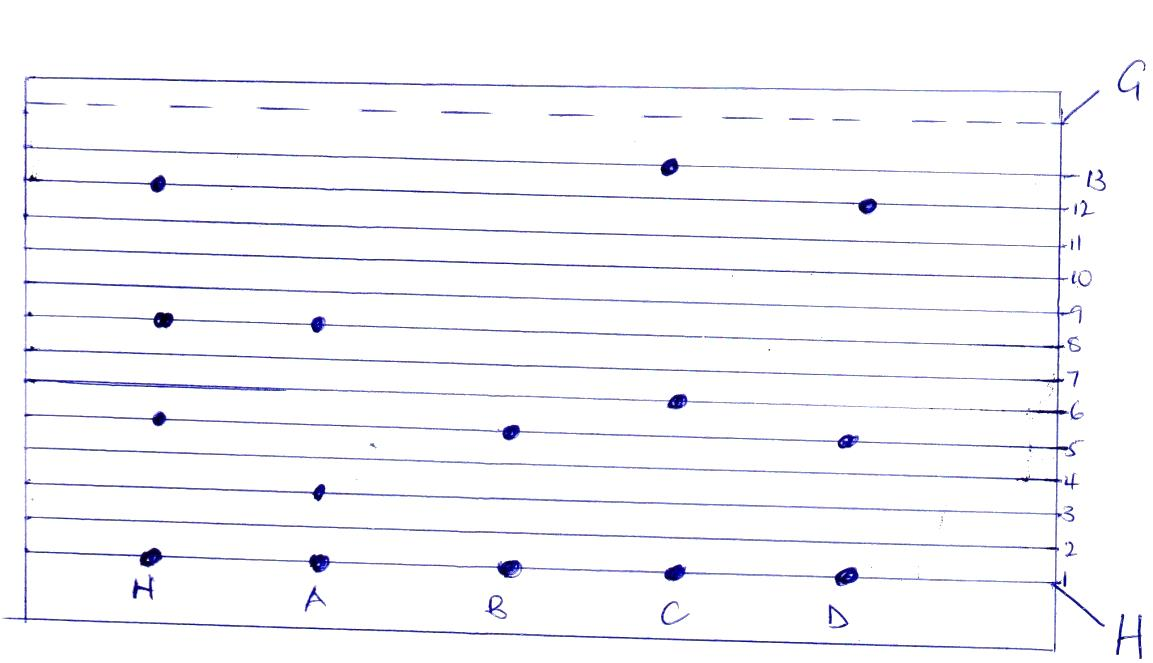 G
13
12
11
10
9
8
7
6
5
4
3
2
1
H A B C D
H